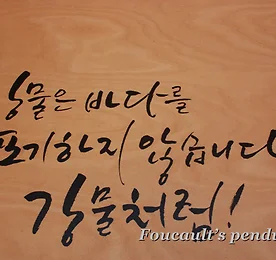 강물은 바다를
포기하지 않습니다
강물처럼!
Foucault's pendu